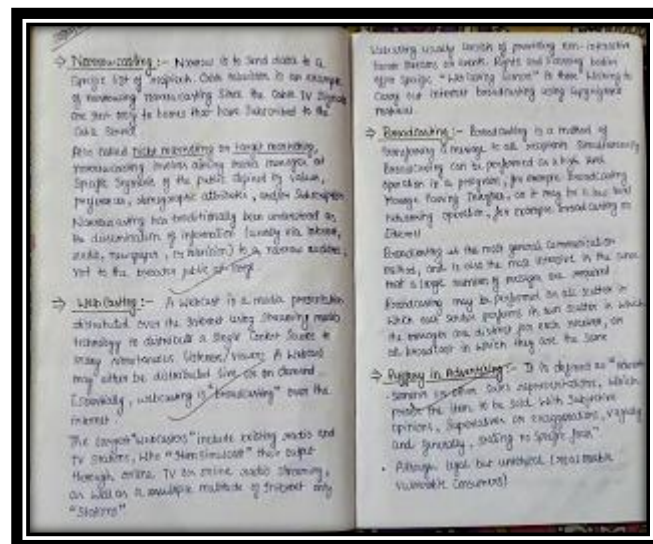 → Narrowcasting :- Narrow is to send data to a
specific list of recipients. Cable television is an example
of narrowcasting since the Cable TV signals
are sent only to homes that have subscribed to the
Cable
Also called niche marketing or target marketing,
narrowcasting involves aiming media messages at
specific segments of the public defined by values,
preferences, demographic attributes, and/or subscription
Narrowcasting has traditionally been understood as
the dissemination of information (usually via internet,
radio, newspaper, or television) to a narrow audience,
not to the broader public at large
→ Web Casting :- A webcast is a media presentation
distributed over the internet using streaming media
technology to distribute a single content source to
many simultaneous listeners/viewers. A webcast
may either be distributed live or on demand.
Essentially, webcasting is "broadcasting" over the
internet.
The largest "webcasters" include existing radio and
TV stations, who "simulcast" their output
through online TV or online radio streaming,
as well as a multitude of internet only
"Stations"
Webcasting usually consists of providing non-interactive
linear streams or events. Rights and licensing bodies
offer specific "webcasting licence" to those wishing to
carry out internet broadcasting using copyrighted
material.
→ Broadcasting :- Broadcasting is a method of
transferring a message to all recipients simultaneously
Broadcasting can be performed as a high level
operation in a program, for example broadcasting
Message Passing Interface, or it may be a low level
networking operation, for example broadcasting on
Ethernet
Broadcasting is the most general communication
method, and is also the most intensive in the sense
that a large number of messages are required
Broadcasting may be performed as all scatter in
which each sender performs its own scatter in which
the messages are distinct for each receiver, or
all broadcast in which they are the same
→ Puffery in Advertising :- It is defined as
or other sales representations, which
praise the item to be sold with subjective
opinions, superlatives or exaggerations, vaguely
and generally, stating no specific facts"
• Although legal but unethical
vulnerable consumers)